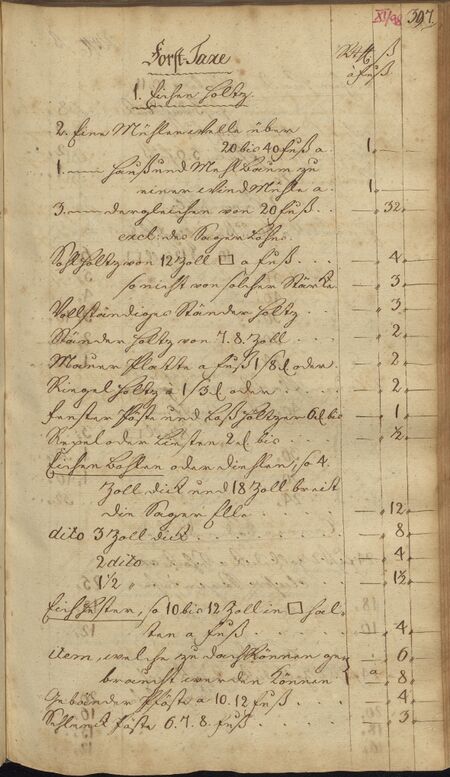 XI/98 397.
Forst-Taxe
ß
à fuß
1. Eichen Holtz.
2. Eine Mühlen Welle über
20 bis 40 fuß a 1.
1. Hauß und Mehl Baum zu
einer Wind Mühle a 1.
3. dergleichen von 20 fuß 32
excl: des Sager Lohns.
Sohl Holtz von 12 Zoll □ a fuß 4
so nicht von solcher Stärke 3
Vollständiges Ständer Holtz 3
Ständer Holtz von 7. 8 Zoll 2
Mauer Platte a fuß 1/8 oder 2
Riegel Holtz a 1/3 oder 2
Fenster Pöste und Holtzer bis 1
oder Leisten 2 bis ½
Eichen Bohlen oder Diehlen, so 4
Zoll dick und 18 Zoll breit
die Sager Elle 12
dito 3 Zoll dick 8
2 dito 4
1½ " 1½
so 10 bis 12 Zoll in □ hal-
ten a fuß 4
item, welche zu Dach Rönnen ge- 6
braucht werden können a 8
Pföste a 10. 12 fuß 4
6. 7. 8. fuß 3